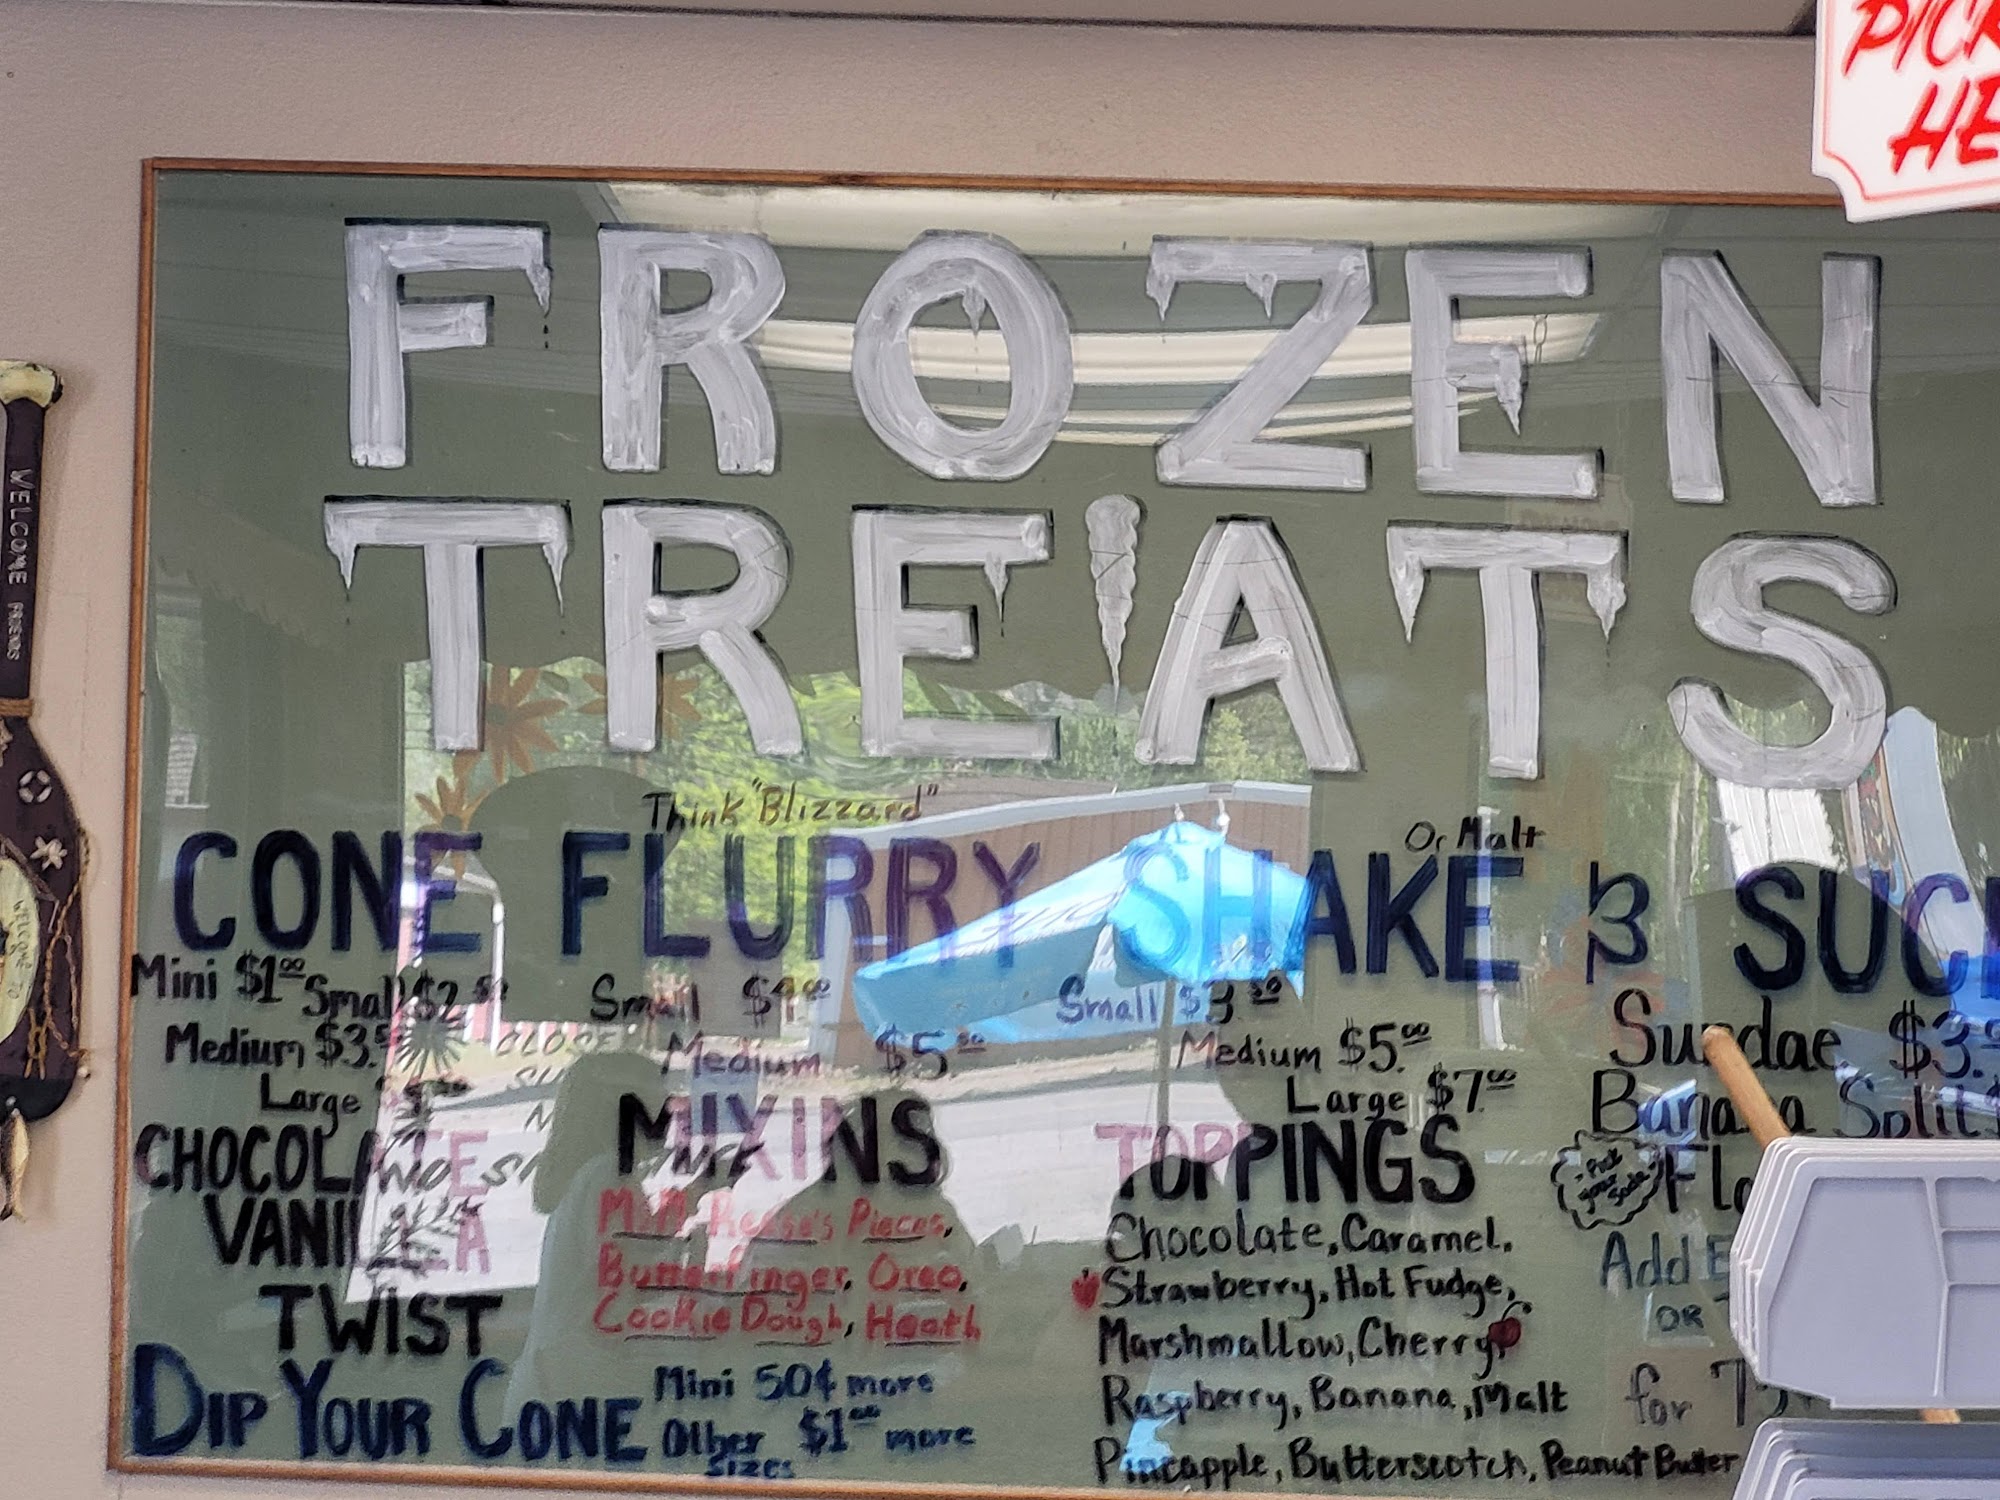 PICK
HE
WELCOME FRIENDS
WELCOME TO
FROZEN
TREATS
Think "Blizzard"
Or Malt
CONE FLURRY SHAKE B SUC
Mini $1.00 Small $2.50
Medium $3.5
Large
Small $4.00
Medium $5.50
Small $3.50
Medium $5.00
Large $7.00
Sundae $3.
Banana Split
Pick your Soda
Flo
Add
OR
for 75
CHOCOLATE
VANILLA
TWIST
MIXINS
M&M, Reese's Pieces,
Butterfinger, Oreo,
Cookie Dough, Heath
TOPPINGS
Chocolate, Caramel,
Strawberry, Hot Fudge,
Marshmallow, Cherry,
Raspberry, Banana, Malt
Pineapple, Butterscotch, Peanut Butter
DIP YOUR CONE
Mini 50¢ more
Other $1.00 more
Sizes